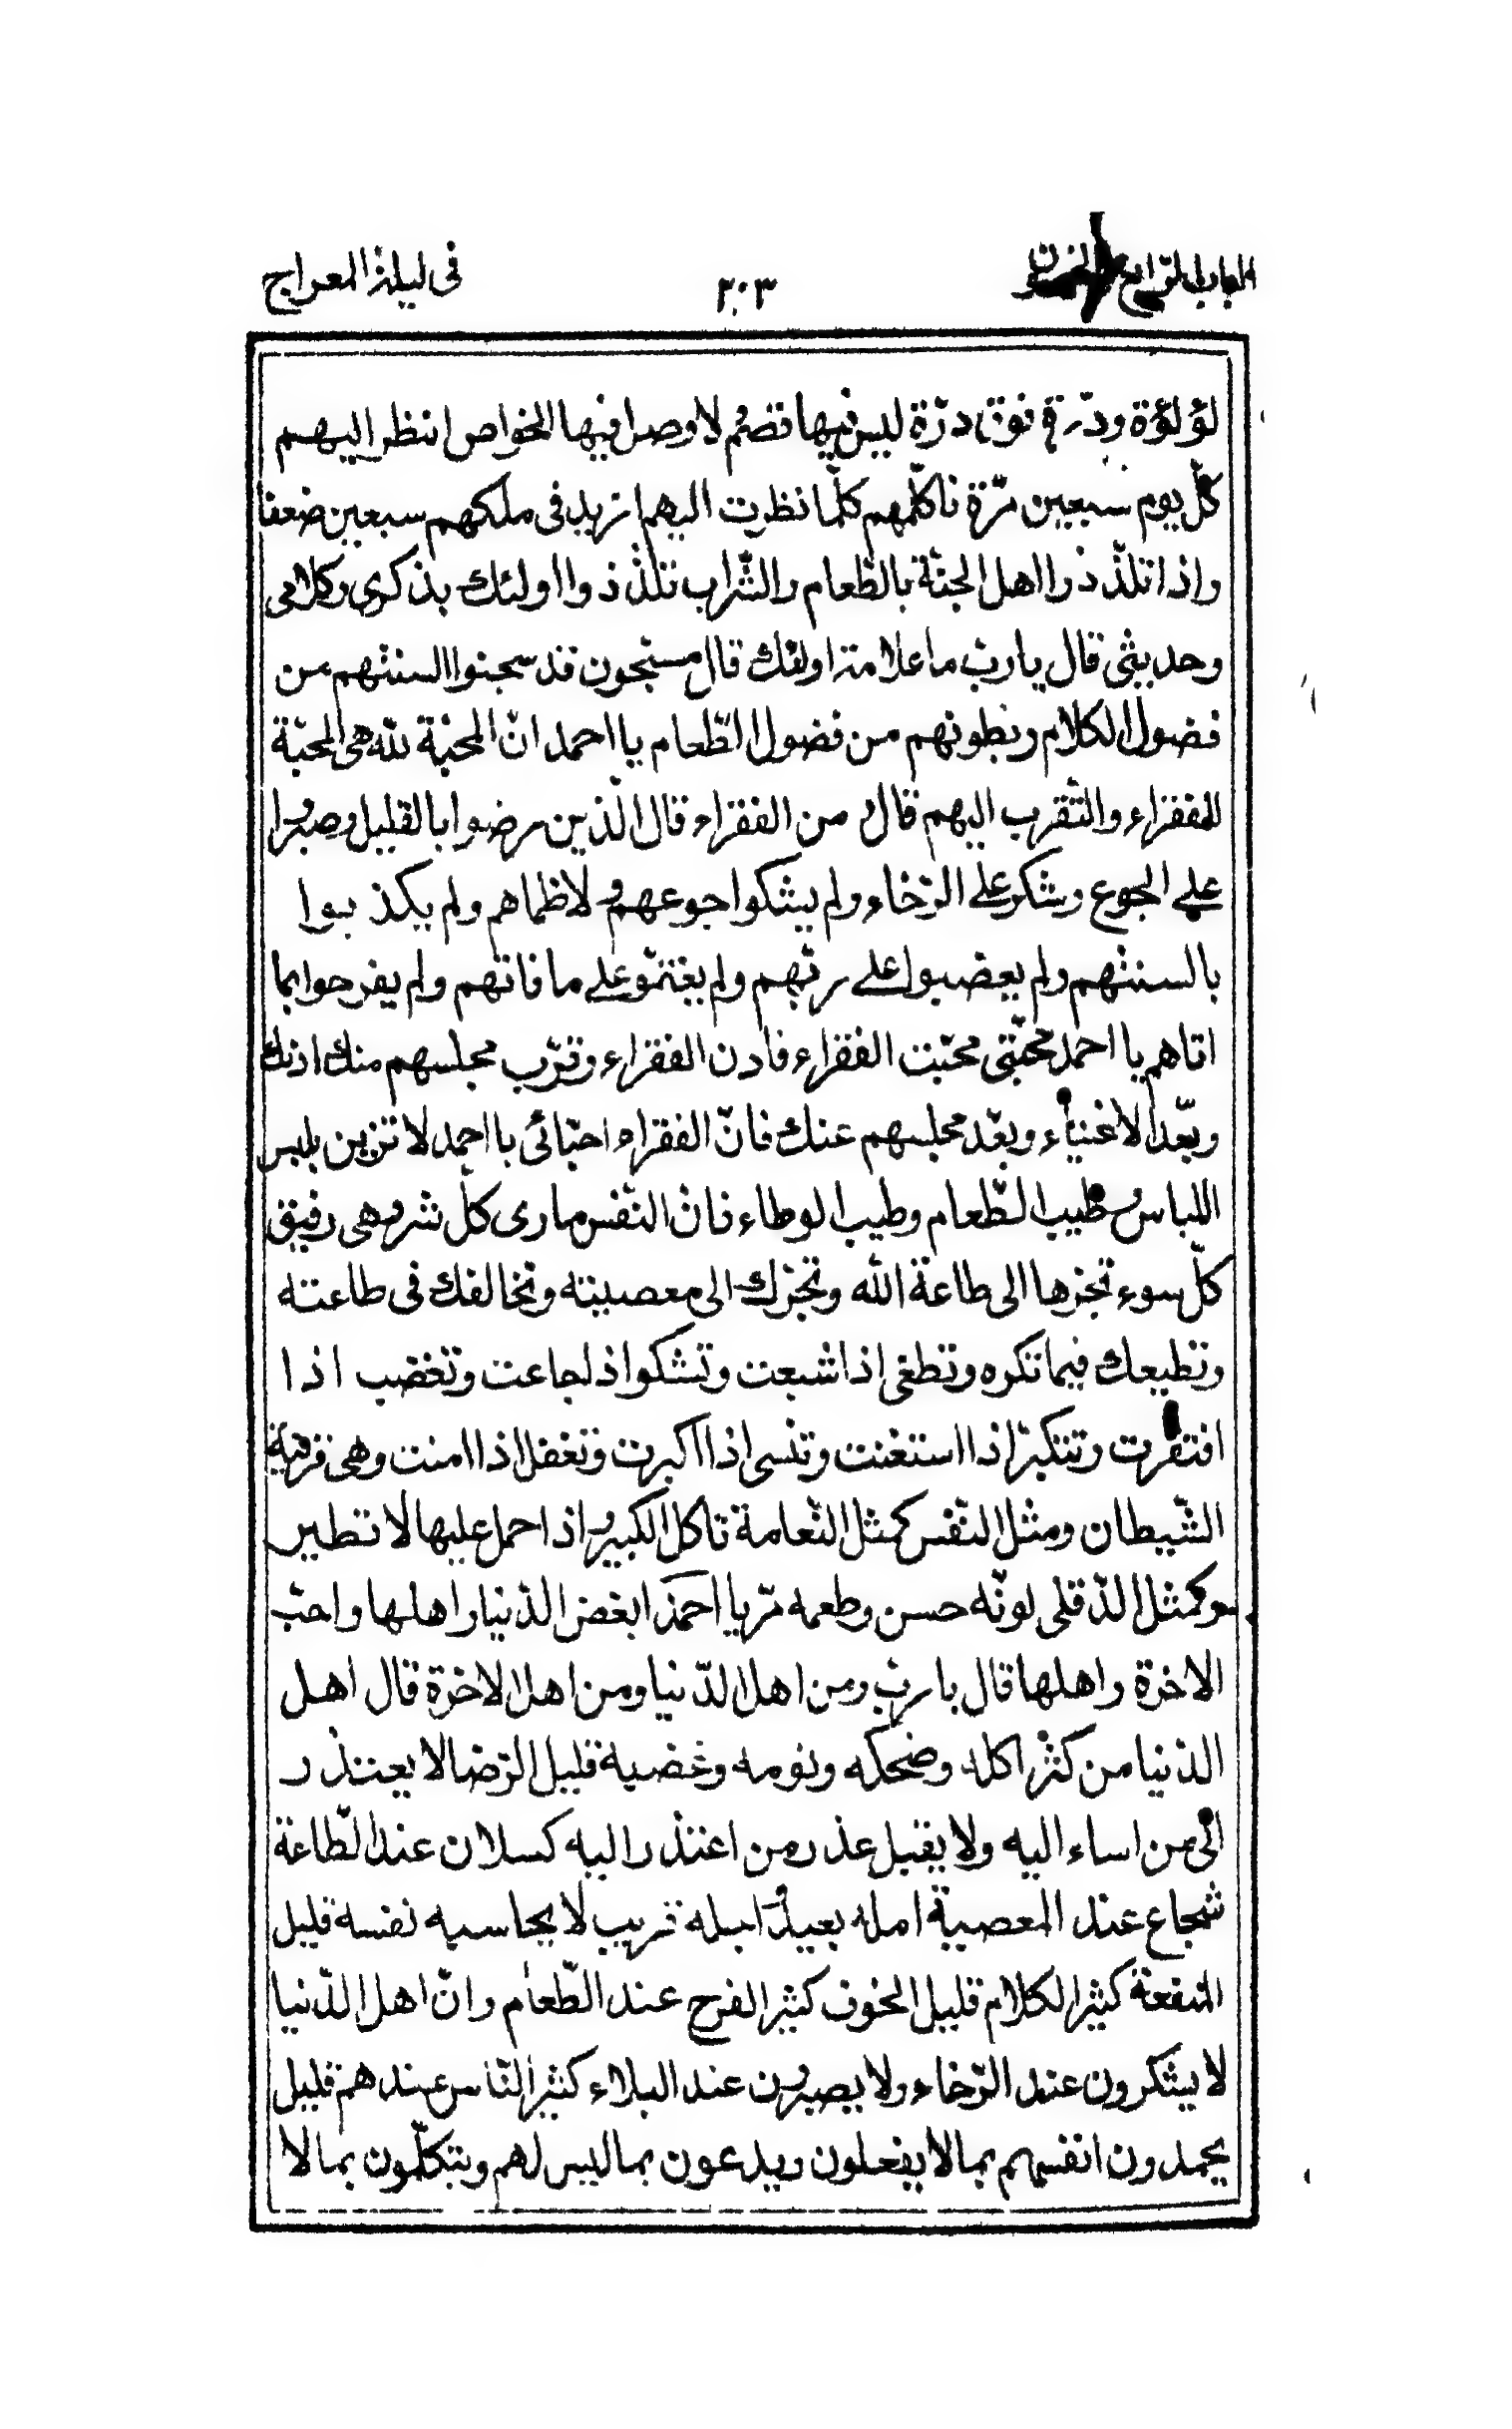 الباب الرابع والخمسون ٢٠٣ فی لیلة المعراج
لؤلؤة ودرّة فوق درّة ليس فيها قضم ولا وصل فيها الخواص انظر اليهم
كلّ يوم سبعين مرّة ناكلّمهم كلّما نظرت اليهم ازيد فى ملكهم سبعين ضعفا
واذا تلذّذوا اهل الجنّة بالطّعام والشّراب تلذّذوا اولئك بذكرى وكلامى
وحديثى قال يا ربّ ما علامة اولئك قال مسجون قد سجنوا السنتهم من
فضول الكلام وبطونهم من فضول الطّعام يا احمد انّ المحبّة للّه هى المحبّة
للفقراء والتّقرب اليهم قال من الفقراء قال الّذين رضوا بالقليل وصبروا
على الجوع وشكر على الرّخاء ولم يشكوا جوعهم ولا ظماهم ولم يكذبوا
بالسنتهم ولم يعضبوا على ربّهم ولم يغتمّو على ما فاتهم ولم يفرحوا بما
اتاهم يا احمد محبّتى محبّت الفقراء فادن الفقراء وقرّب مجلسهم منك ادنك
وبعّد الاغنياء وبعّد مجلسهم عنك فانّ الفقراء احبّائى يا احمد لا تزين بلبس
اللباس وطيب الطّعام وطيب الوطاء فانّ النّفس ماوى كلّ شر وهى رفيق
كلّ سوء تجزها الى طاعة اللّه وتجزك الى معصيته وتخالفك فى طاعته
وتطيعك فيما تكره وتطغى اذا شبعت وتشكوا ذا جاعت وتغضب اذا
افتقرت وتتكبّر اذا استغنت وتنسى اذا اكبرت وتغفل اذا امنت وهى قرينة
الشّيطان ومثل النّفس كمثل النّعامة تاكل الكبير واذا حمل عليها لا تطير
وكمثل الدّقلى لونه حسن وطعمه مرّ يا احمد ابغض الدّنيا واهلها واحبّ
الاخرة واهلها قال يا ربّ ومن اهل الدّنيا ومن اهل الاخرة قال اهل
الدّنيا من كثر اكله وضحكه ونومه وغضبه قليل الرّضا لا يعتذر
الى من اساء اليه ولا يقبل عذر من اعتذر اليه كسلان عند الطّاعة
شجاع عند المعصية امله بعيد واجله قريب لا يحاسبه نفسه قليل
المنفعة كثير الكلام قليل الخوف كثير الفرح عند الطّعام وانّ اهل الدّنيا
لا يشكرون عند الرّخاء ولا يصبرون عند البلاء كثير النّاس عندهم قليل
يحمدون انفسهم بما لا يفعلون ويدعون بما ليس لهم ويتكلّمون بما لا